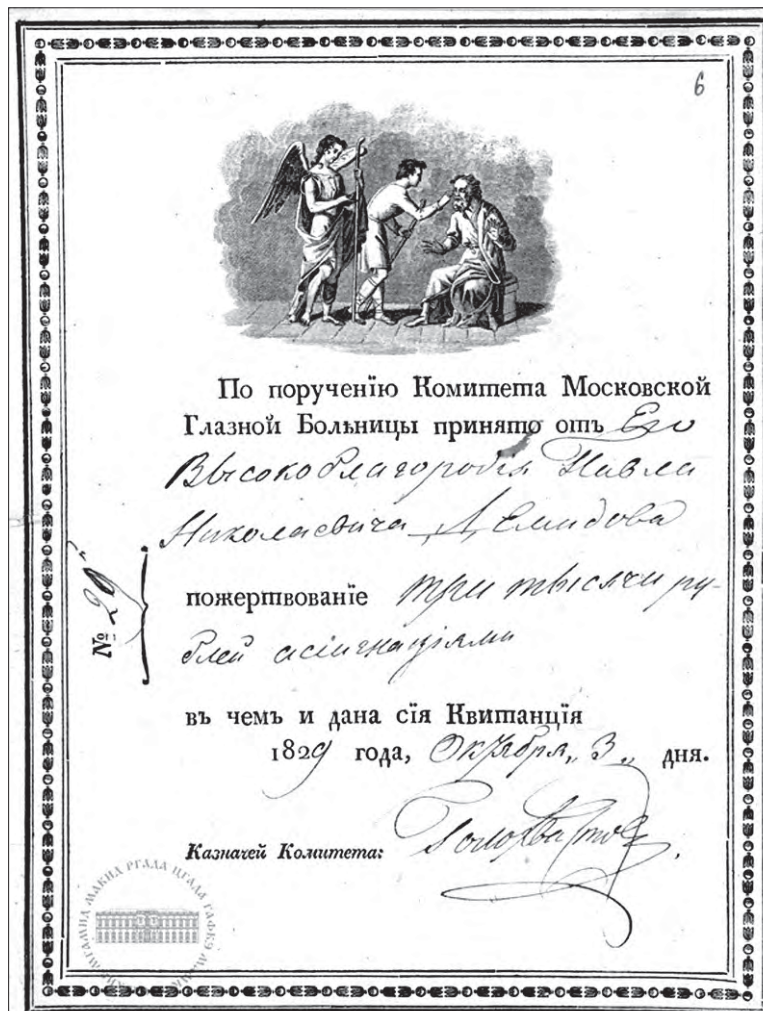 6
По порученїю Комитета Московской
Глазной Больницы принято отъ Его
Высокоблагородїя Павла
Николаевича Демидова
№ 29
пожертвованїе три тысячи ру-
блей ассигнацїями
въ чемъ и дана сїя Квитанцїя
1829 года, Октября „ 3 „ дня.
Казначей Комитета: Голохвастов
МГАМИД МАКИД РГАДА ЦГАДА ГАФКЭ